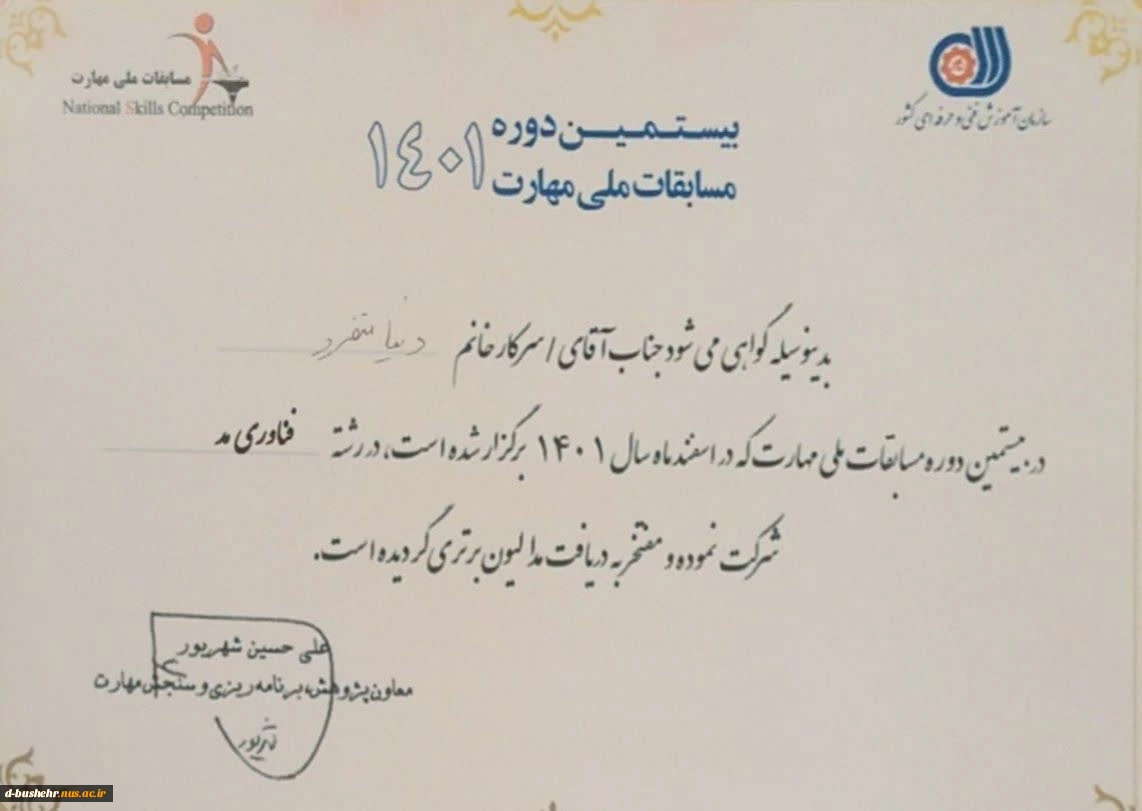 مسابقات ملی مهارت
National Skills Competition
سازمان آموزش فنی و حرفه ای کشور
بیستمین دوره
مسابقات ملی مهارت
۱۴۰۱
بدینوسیله گواهی می شود جناب آقای / سرکار خانم دنیا
در بیستمین دوره مسابقات ملی مهارت که در اسفند ماه سال ۱۴۰۱ برگزار شده است، در رشته فناوری مد
شرکت نموده و مفتخر به دریافت مدالیون برتری گردیده است.
علی حسین شهریور
معاون پژوهش، برنامه ریزی و سنجش مهارت
d-bushehr.nus.ac.ir